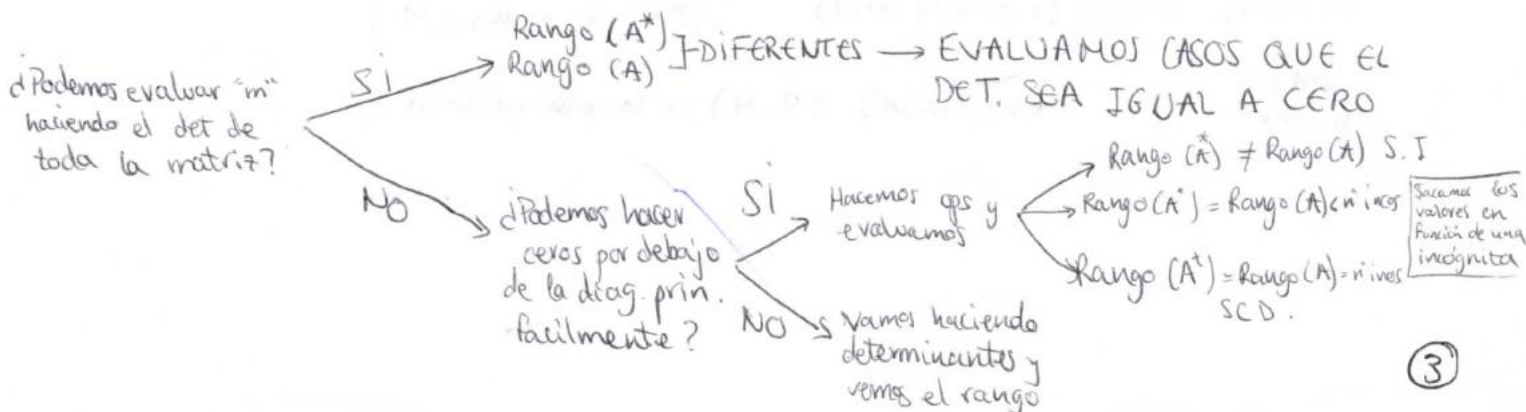 ¿Podemos evaluar "m"
haciendo el det de
toda la matriz?
SI
Rango (A*)
Rango (A)
DIFERENTES → EVALUAMOS CASOS QUE EL
DET. SEA IGUAL A CERO
NO
¿Podemos hacer
ceros por debajo
de la diag. prin.
facilmente?
SI
Hacemos ops y
evaluamos
Rango (A*) ≠ Rango (A) S.I
Rango (A*) = Rango (A) < nº incos
Sacamos los
valores en
función de una
incógnita
Rango (A*) = Rango (A) = nº incos
SCD.
NO
Vamos haciendo
determinantes y
vemos el rango
3